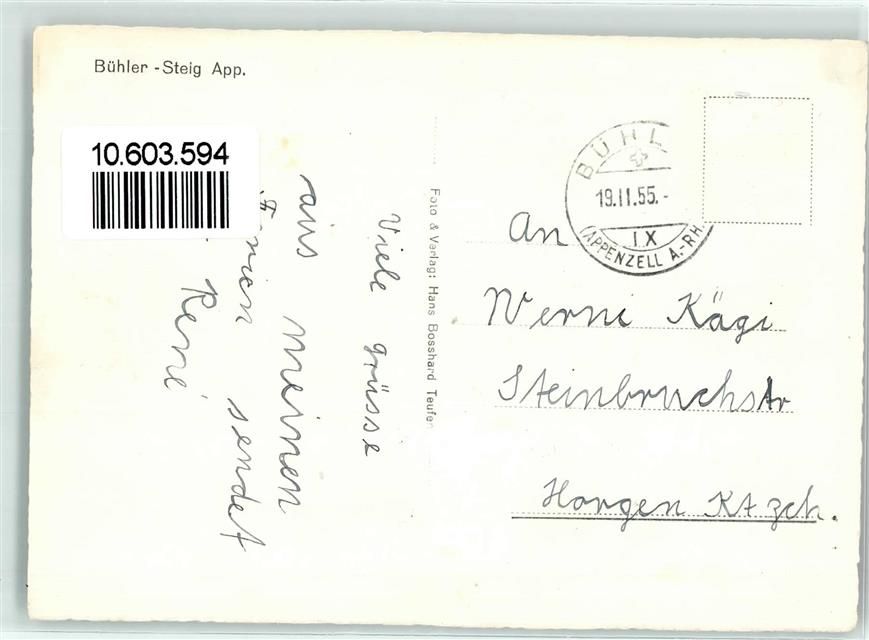 Bühler - Steig App.
10.603.594
Viele Grüsse
aus meinen
Ferien sendet
René
Foto & Verlag: Hans Bosshard Teufen
BÜHL
19.II.55.-
IX
(APPENZELL A.-RH.
An
Werni Kägi
Steinbruchstr
Horgen Kt zch.